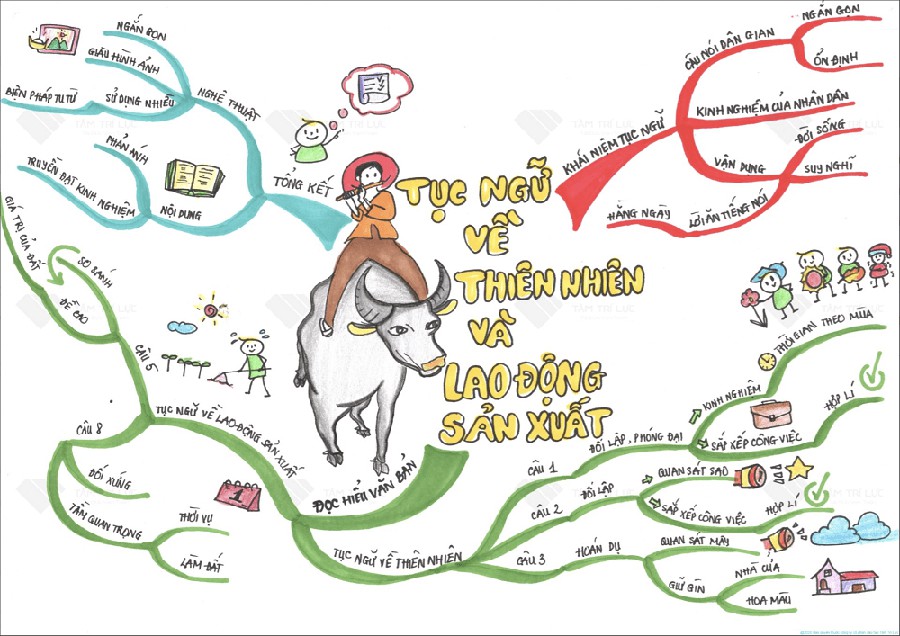 TỤC NGỮ
VỀ
THIÊN NHIÊN
VÀ
LAO ĐỘNG
SẢN XUẤT
KHÁI NIỆM TỤC NGỮ
CÂU NÓI DÂN GIAN
NGẮN GỌN
ỔN ĐỊNH
KINH NGHIỆM CỦA NHÂN DÂN
VẬN DỤNG
ĐỜI SỐNG
SUY NGHĨ
LỜI ĂN TIẾNG NÓI
HẰNG NGÀY
ĐỌC HIỂU VĂN BẢN
TỤC NGỮ VỀ THIÊN NHIÊN
CÂU 1
ĐỐI LẬP, PHÓNG ĐẠI
KINH NGHIỆM
THỜI GIAN THEO MÙA
SẮP XẾP CÔNG VIỆC
HỢP LÍ
CÂU 2
ĐỐI LẬP
QUAN SÁT SAO
SẮP XẾP CÔNG VIỆC
HỢP LÍ
CÂU 3
HOÁN DỤ
QUAN SÁT MÂY
GIỮ GÌN
NHÀ CỬA
HOA MÀU
TỤC NGỮ VỀ LAO ĐỘNG SẢN XUẤT
CÂU 5
SO SÁNH
ĐỀ CAO
GIÁ TRỊ CỦA ĐẤT
CÂU 8
ĐỐI XỨNG
TẦM QUAN TRỌNG
THỜI VỤ
LÀM ĐẤT
1
TỔNG KẾT
NGHỆ THUẬT
NGẮN GỌN
GIÀU HÌNH ẢNH
SỬ DỤNG NHIỀU
BIỆN PHÁP TU TỪ
NỘI DUNG
PHẢN ÁNH
TRUYỀN ĐẠT KINH NGHIỆM
TÂM TRÍ LỰC